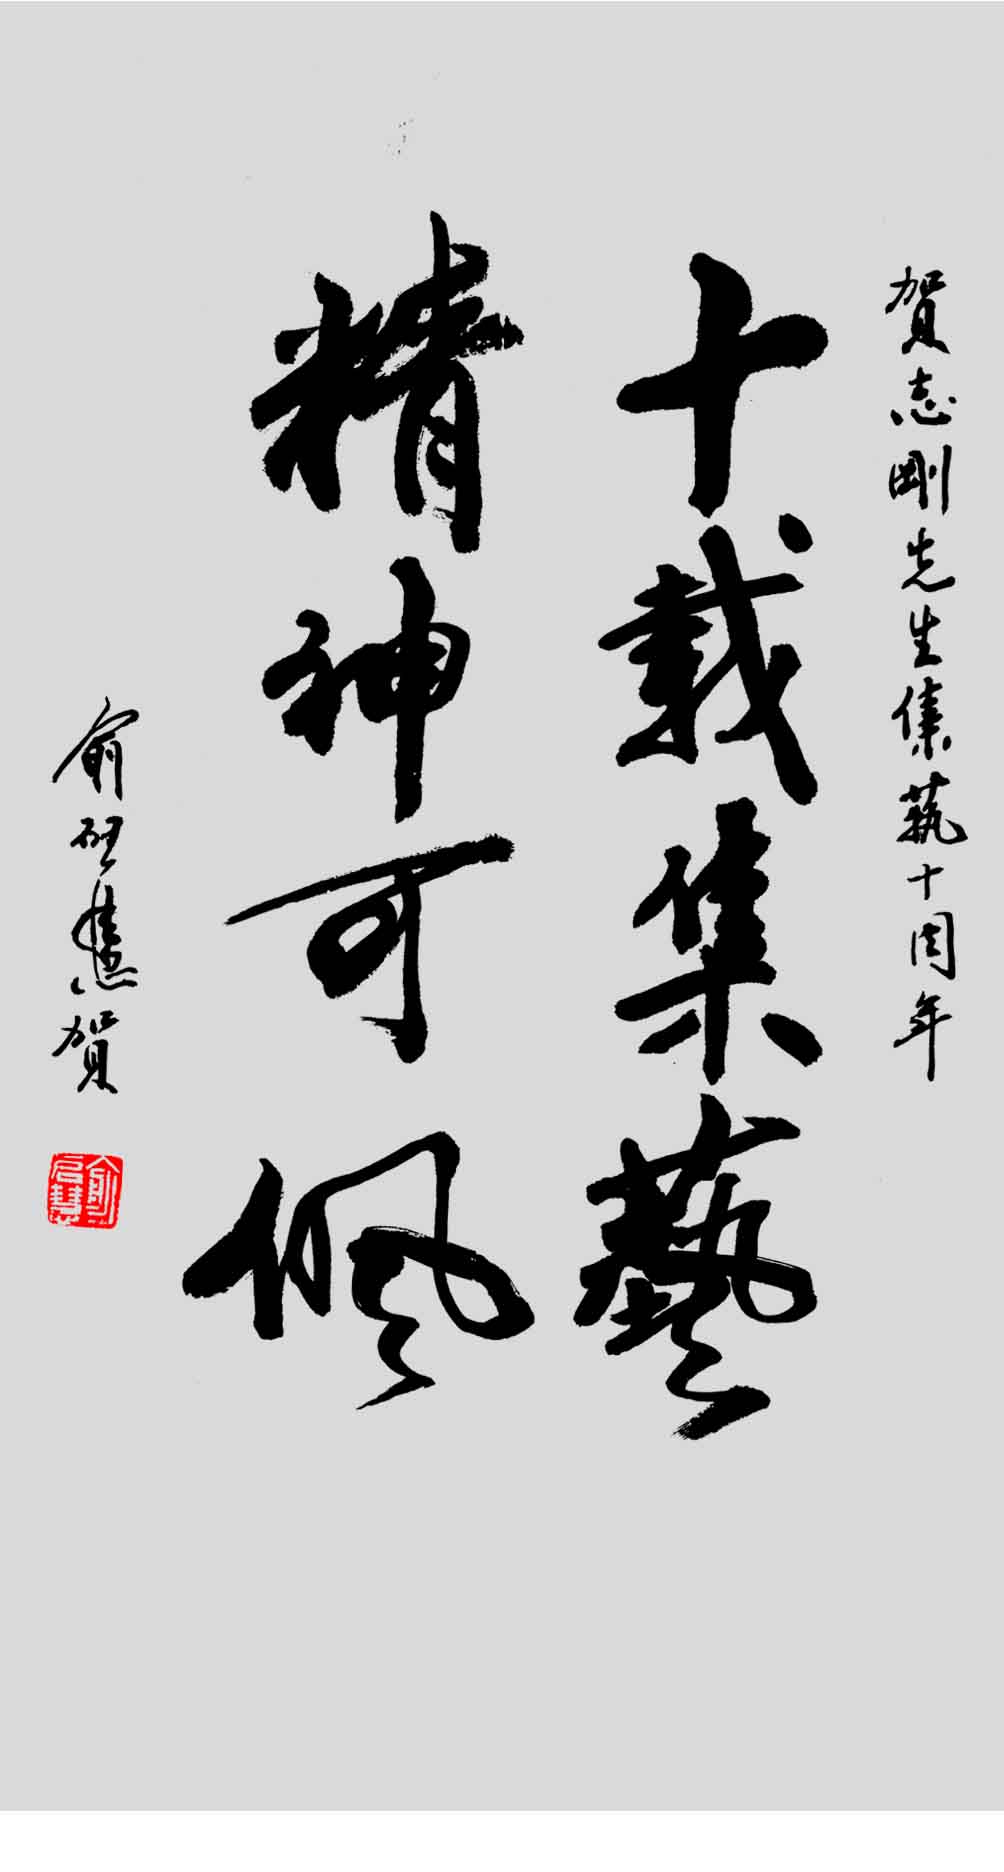 賀志剛先生集藝十周年
十載集藝
精神可佩
俞啟慧賀
俞启慧